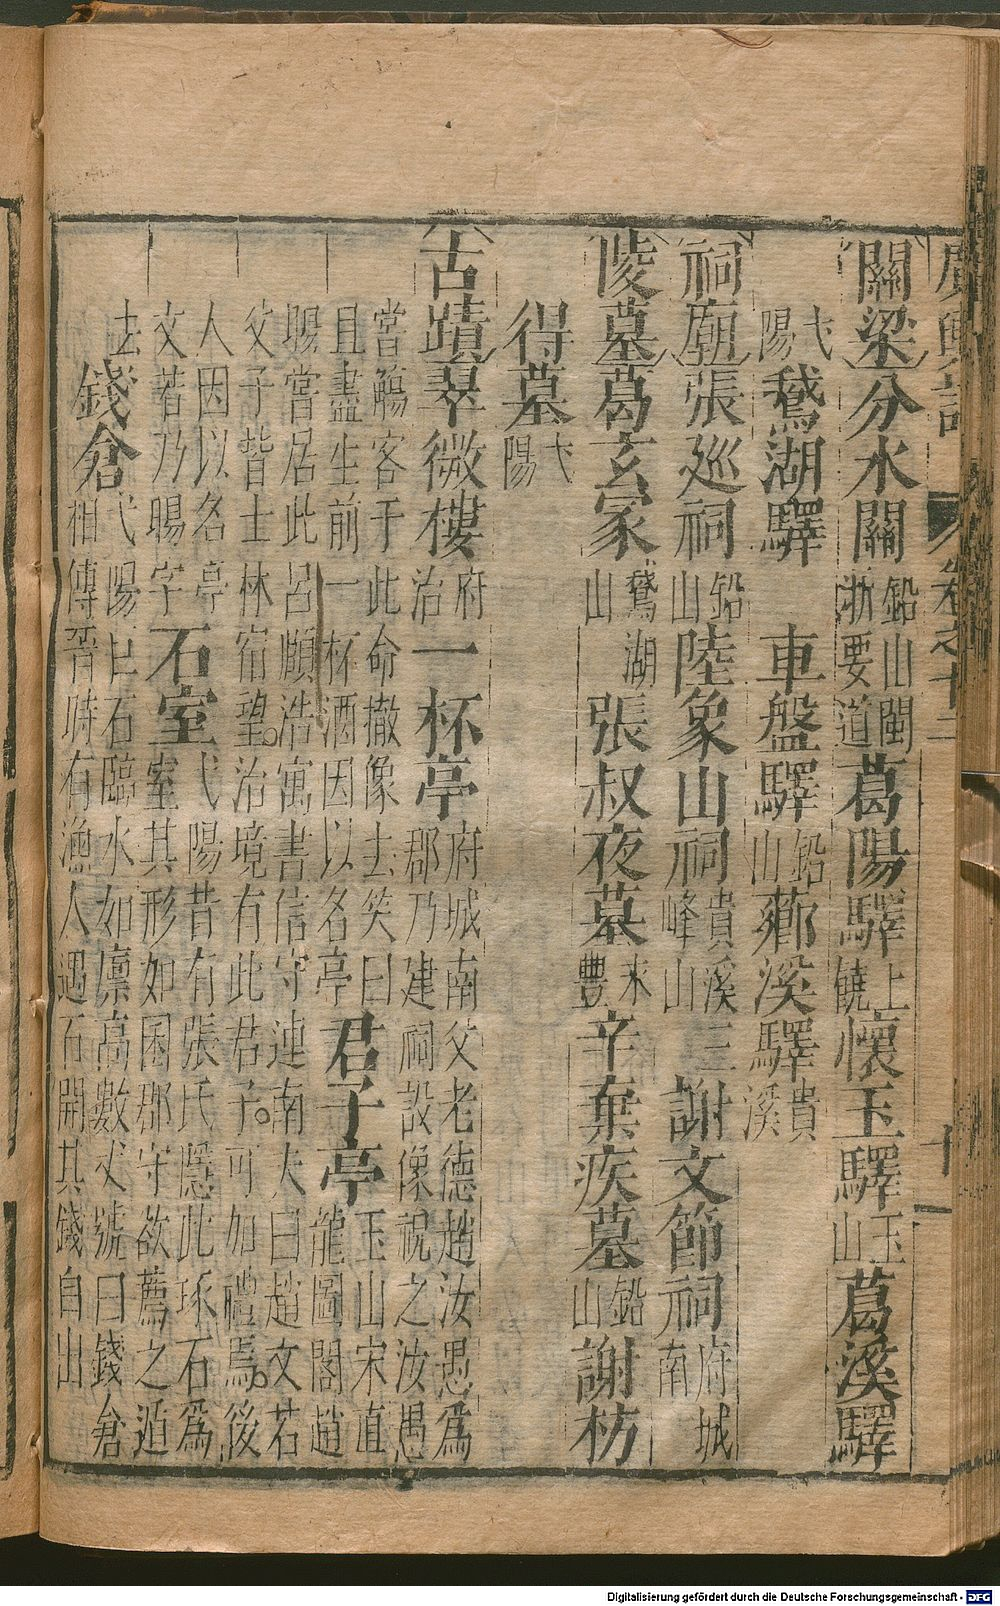 廣輿記 卷之十二 十
關梁 分水關 鉛山閩浙要道 葛陽驛 上饒 懷玉驛 玉山 葛溪驛
弋陽 鵝湖驛 車盤驛 鉛山 薌溪驛 貴溪
祠廟 張巡祠 鉛山 陸象山祠 貴溪三峰山 謝文節祠 府城南
陵墓 葛玄冢 鵝湖山 張叔夜墓 永豐 辛棄疾墓 鉛山 謝枋
得墓 弋陽
古蹟 翠微樓 府治 一杯亭 府城南父老德趙汝愚為郡乃建祠設像祝之汝愚
當觴客于此命撤像去笑曰且盡生前一杯酒因以名亭 君子亭 玉山宋直龍圖閣趙
賜嘗居此呂頤浩寓書信守連南夫曰趙文若父子皆士林宿望。治境有此君子。可加禮焉。後
人因以名亭文若乃賜字 石室 弋陽昔有張氏隱此琢石為室其形如囷郡守欲薦之遁
去 錢倉 弋陽巨石臨水如凛高數丈號曰錢倉相傳晉時有漁人遇石開其錢自出
Digitalisierung gefördert durch die Deutsche Forschungsgemeinschaft - DFG